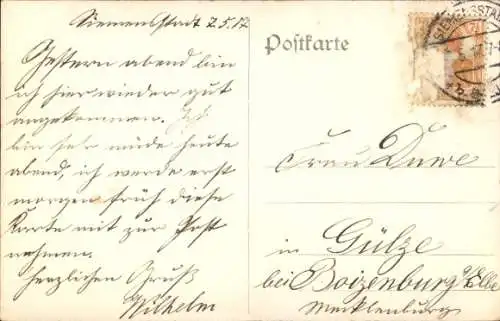 Siemensstadt 7.5.17
Gestern abend bin
ich hier wieder gut
angekommen. Ich
bin sehr müde heute
abend, ich werde erst
morgen früh diese
Karte mit zur Post
nehmen.
Herzlichen Gruß
Wilhelm
Postkarte
Frau Duwe
in Gülze
bei Boizenburg a/Elbe
Mecklenburg